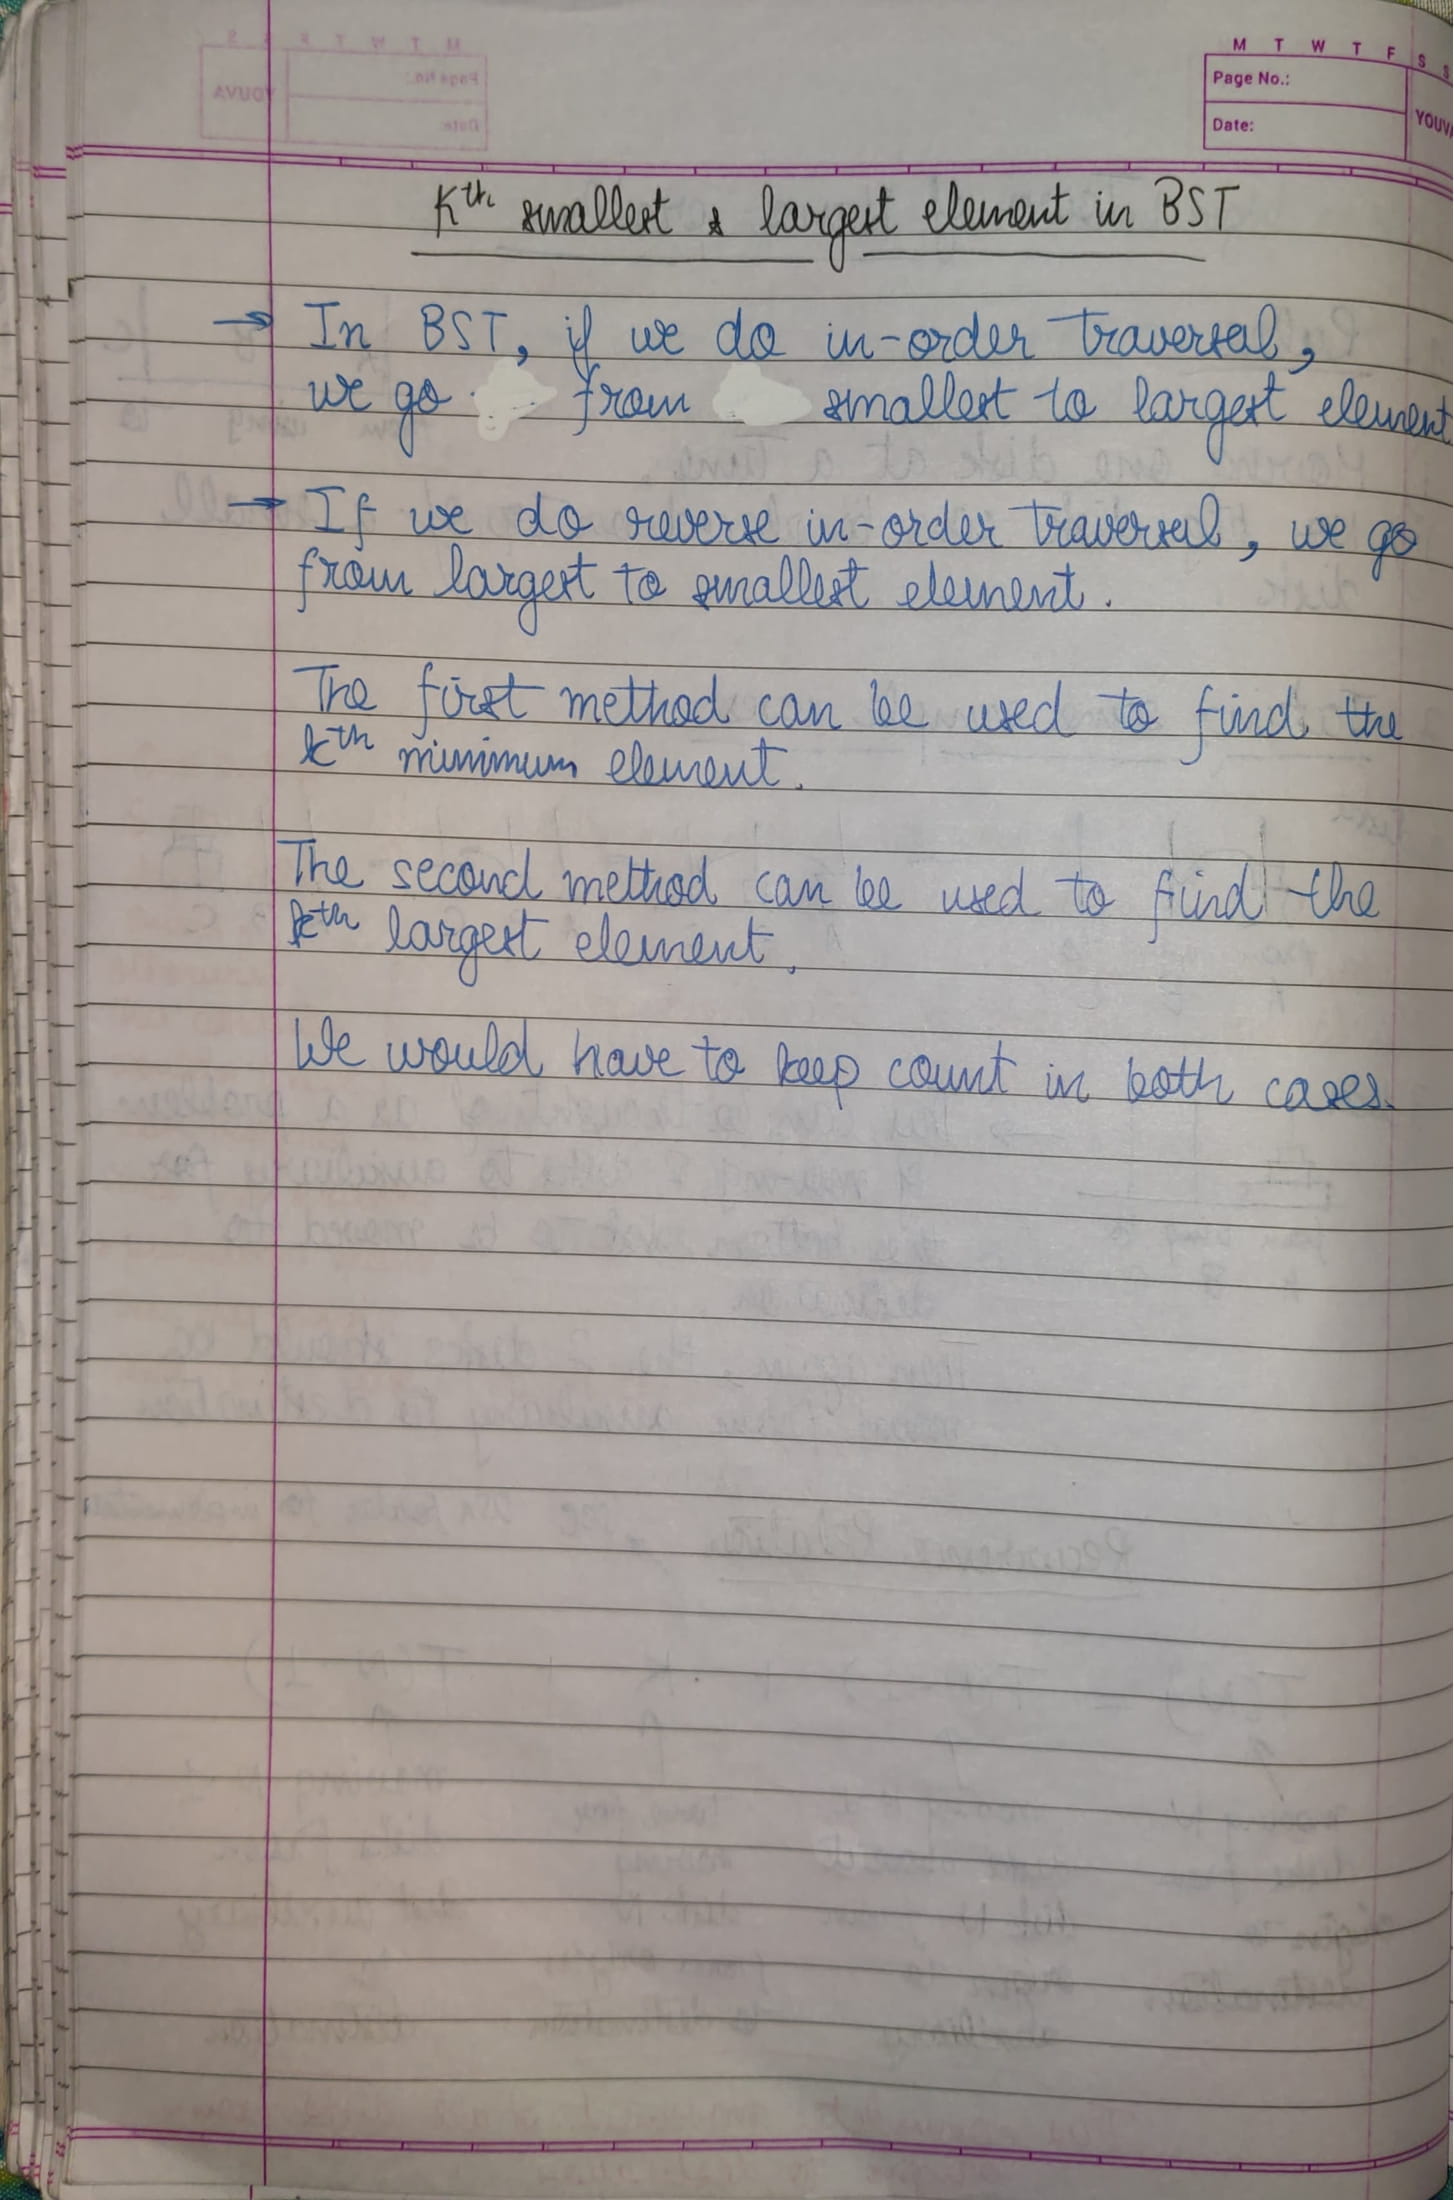 M T W T F S S
Page No.:
Date:
YOUVA
Kth smallest & largest element in BST
→ In BST, if we do in-order traversal,
we go from smallest to largest element
→ If we do reverse in-order traversal, we go
from largest to smallest element.
The first method can be used to find the
kth minimum element.
The second method can be used to find the
kth largest element.
We would have to keep count in both cases.